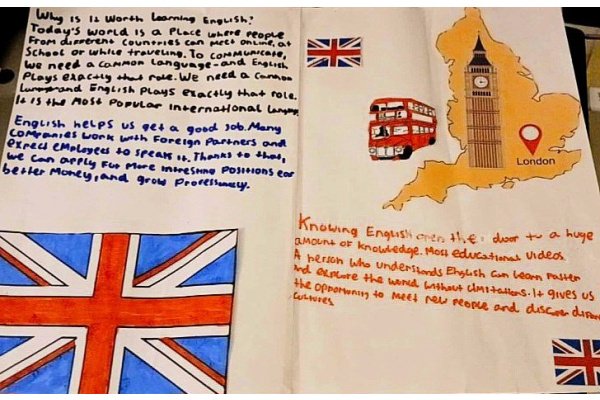 Why is it worth learning English?
Today's world is a place where people
from different countries can meet online, at
school or while traveling. To communicate,
we need a common language-and English
plays exactly that role. We need a common
and English plays exactly that role.
It is the most popular international
English helps us get a good job. Many
companies work with foreign partners and
expect employees to speak it. Thanks to that,
we can apply for more intresting positions ear
better money, and grow
London
Knowing English open the door to a huge
amount of knowledge. Most educational videos
A person who understands English can learn faster
and explore the world without limitations. It gives us
the opportunity to meet new people and discover
cultures